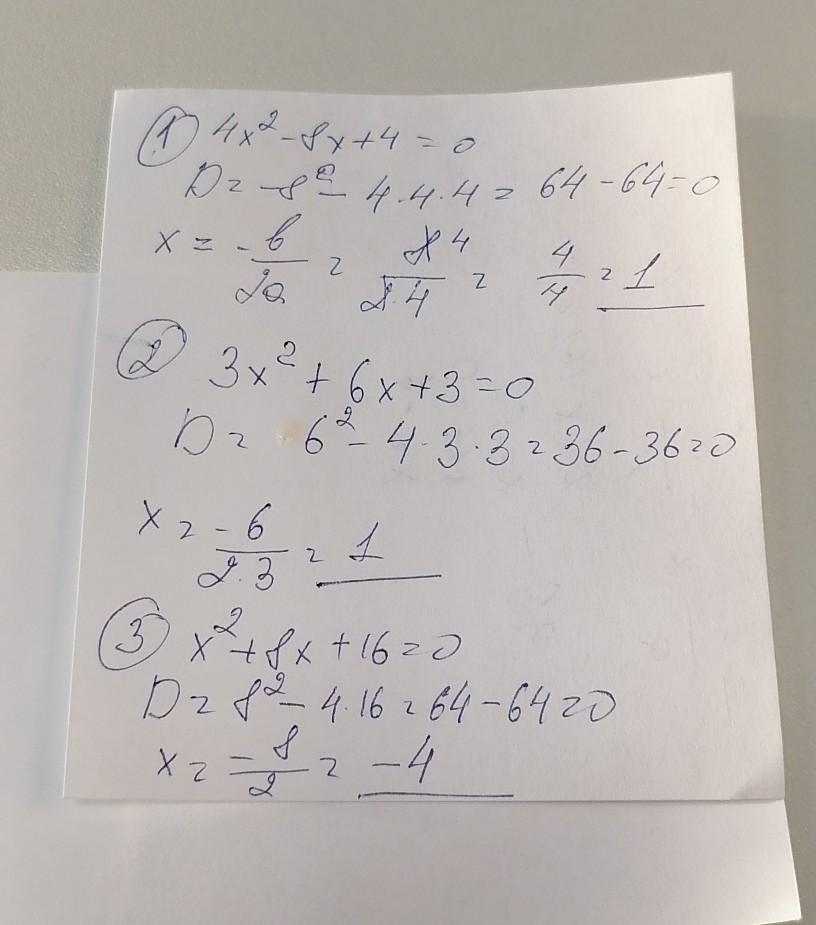 ① 4x² - 8x + 4 = 0
D = -8² - 4·4·4 = 64 - 64 = 0
x = -b/2a = 8 4/2·4 = 4/4 = 1
② 3x² + 6x + 3 = 0
D = 6² - 4·3·3 = 36 - 36 = 0
x = -6/2·3 = 1
③ x² + 8x + 16 = 0
D = 8² - 4·16 = 64 - 64 = 0
x = -8/2 = -4